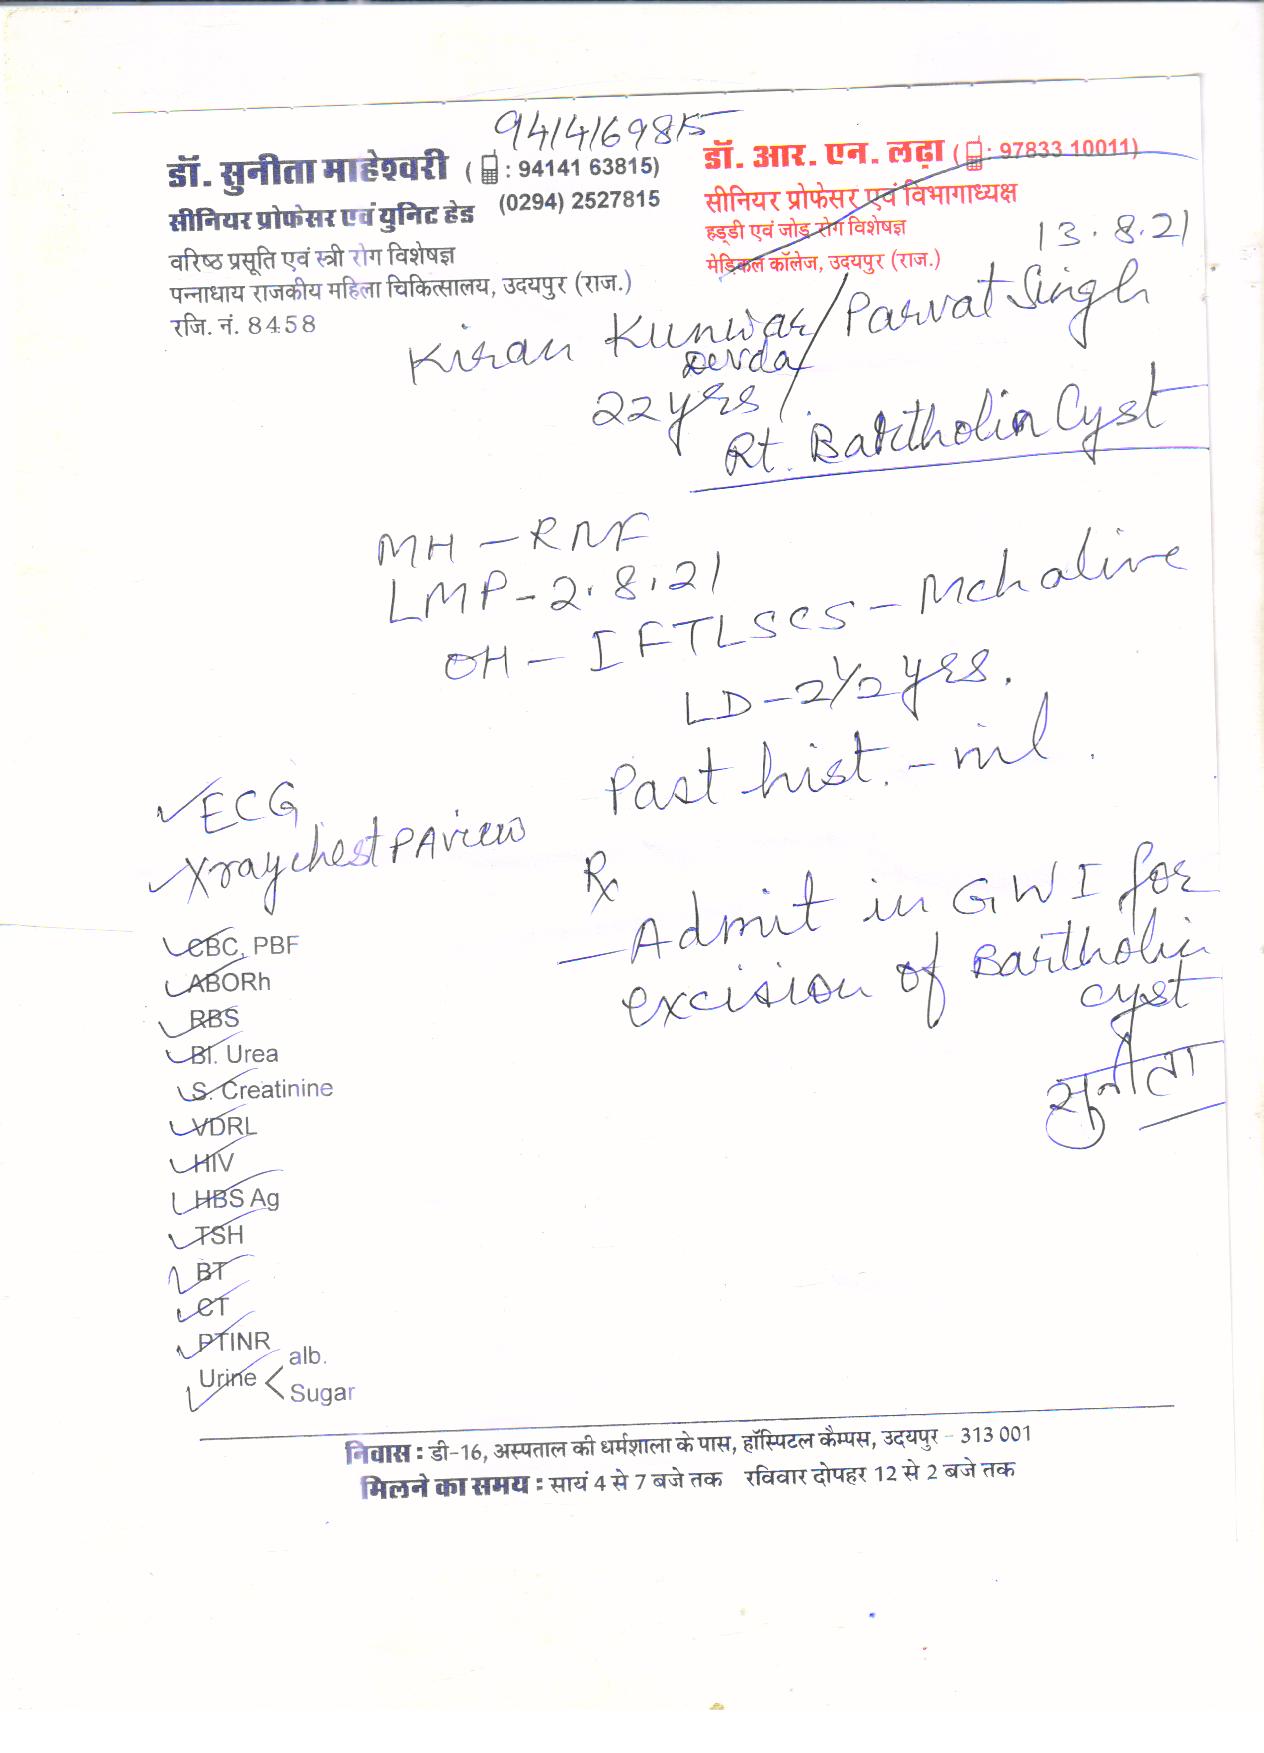 9414169815
डॉ. सुनीता माहेश्वरी (: 94141 63815)
(0294) 2527815
सीनियर प्रोफेसर एवं युनिट हेड
वरिष्ठ प्रसूति एवं स्त्री रोग विशेषज्ञ
पन्नाधाय राजकीय महिला चिकित्सालय, उदयपुर (राज.)
रजि. नं. 8458
डॉ. आर. एन. लढ़ा (: 97833 10011)
सीनियर प्रोफेसर एवं विभागाध्यक्ष
हड्डी एवं जोड़ रोग विशेषज्ञ
मेडिकल कॉलेज, उदयपुर (राज.)
13.8.21
Kiran Kunwar/Parvat Singh
Devda
22yrs/
Rt. Bartholin Cyst
MH - RNF
LMP - 2.8.21
OH - I FTLSCS - Mch alive
LD - 2 1/2 yrs.
Past hist. - nil.
ECG
Xray chest PA view
Rx
- Admit in GWI for
excision of Bartholin
cyst
सुनीता
CBC, PBF
ABORh
RBS
Bl. Urea
S. Creatinine
VDRL
HIV
HBS Ag
TSH
BT
CT
PTINR
Urine < alb.
Sugar
निवास : डी-16, अस्पताल की धर्मशाला के पास, हॉस्पिटल कैम्पस, उदयपुर - 313 001
मिलने का समय : सायं 4 से 7 बजे तक रविवार दोपहर 12 से 2 बजे तक